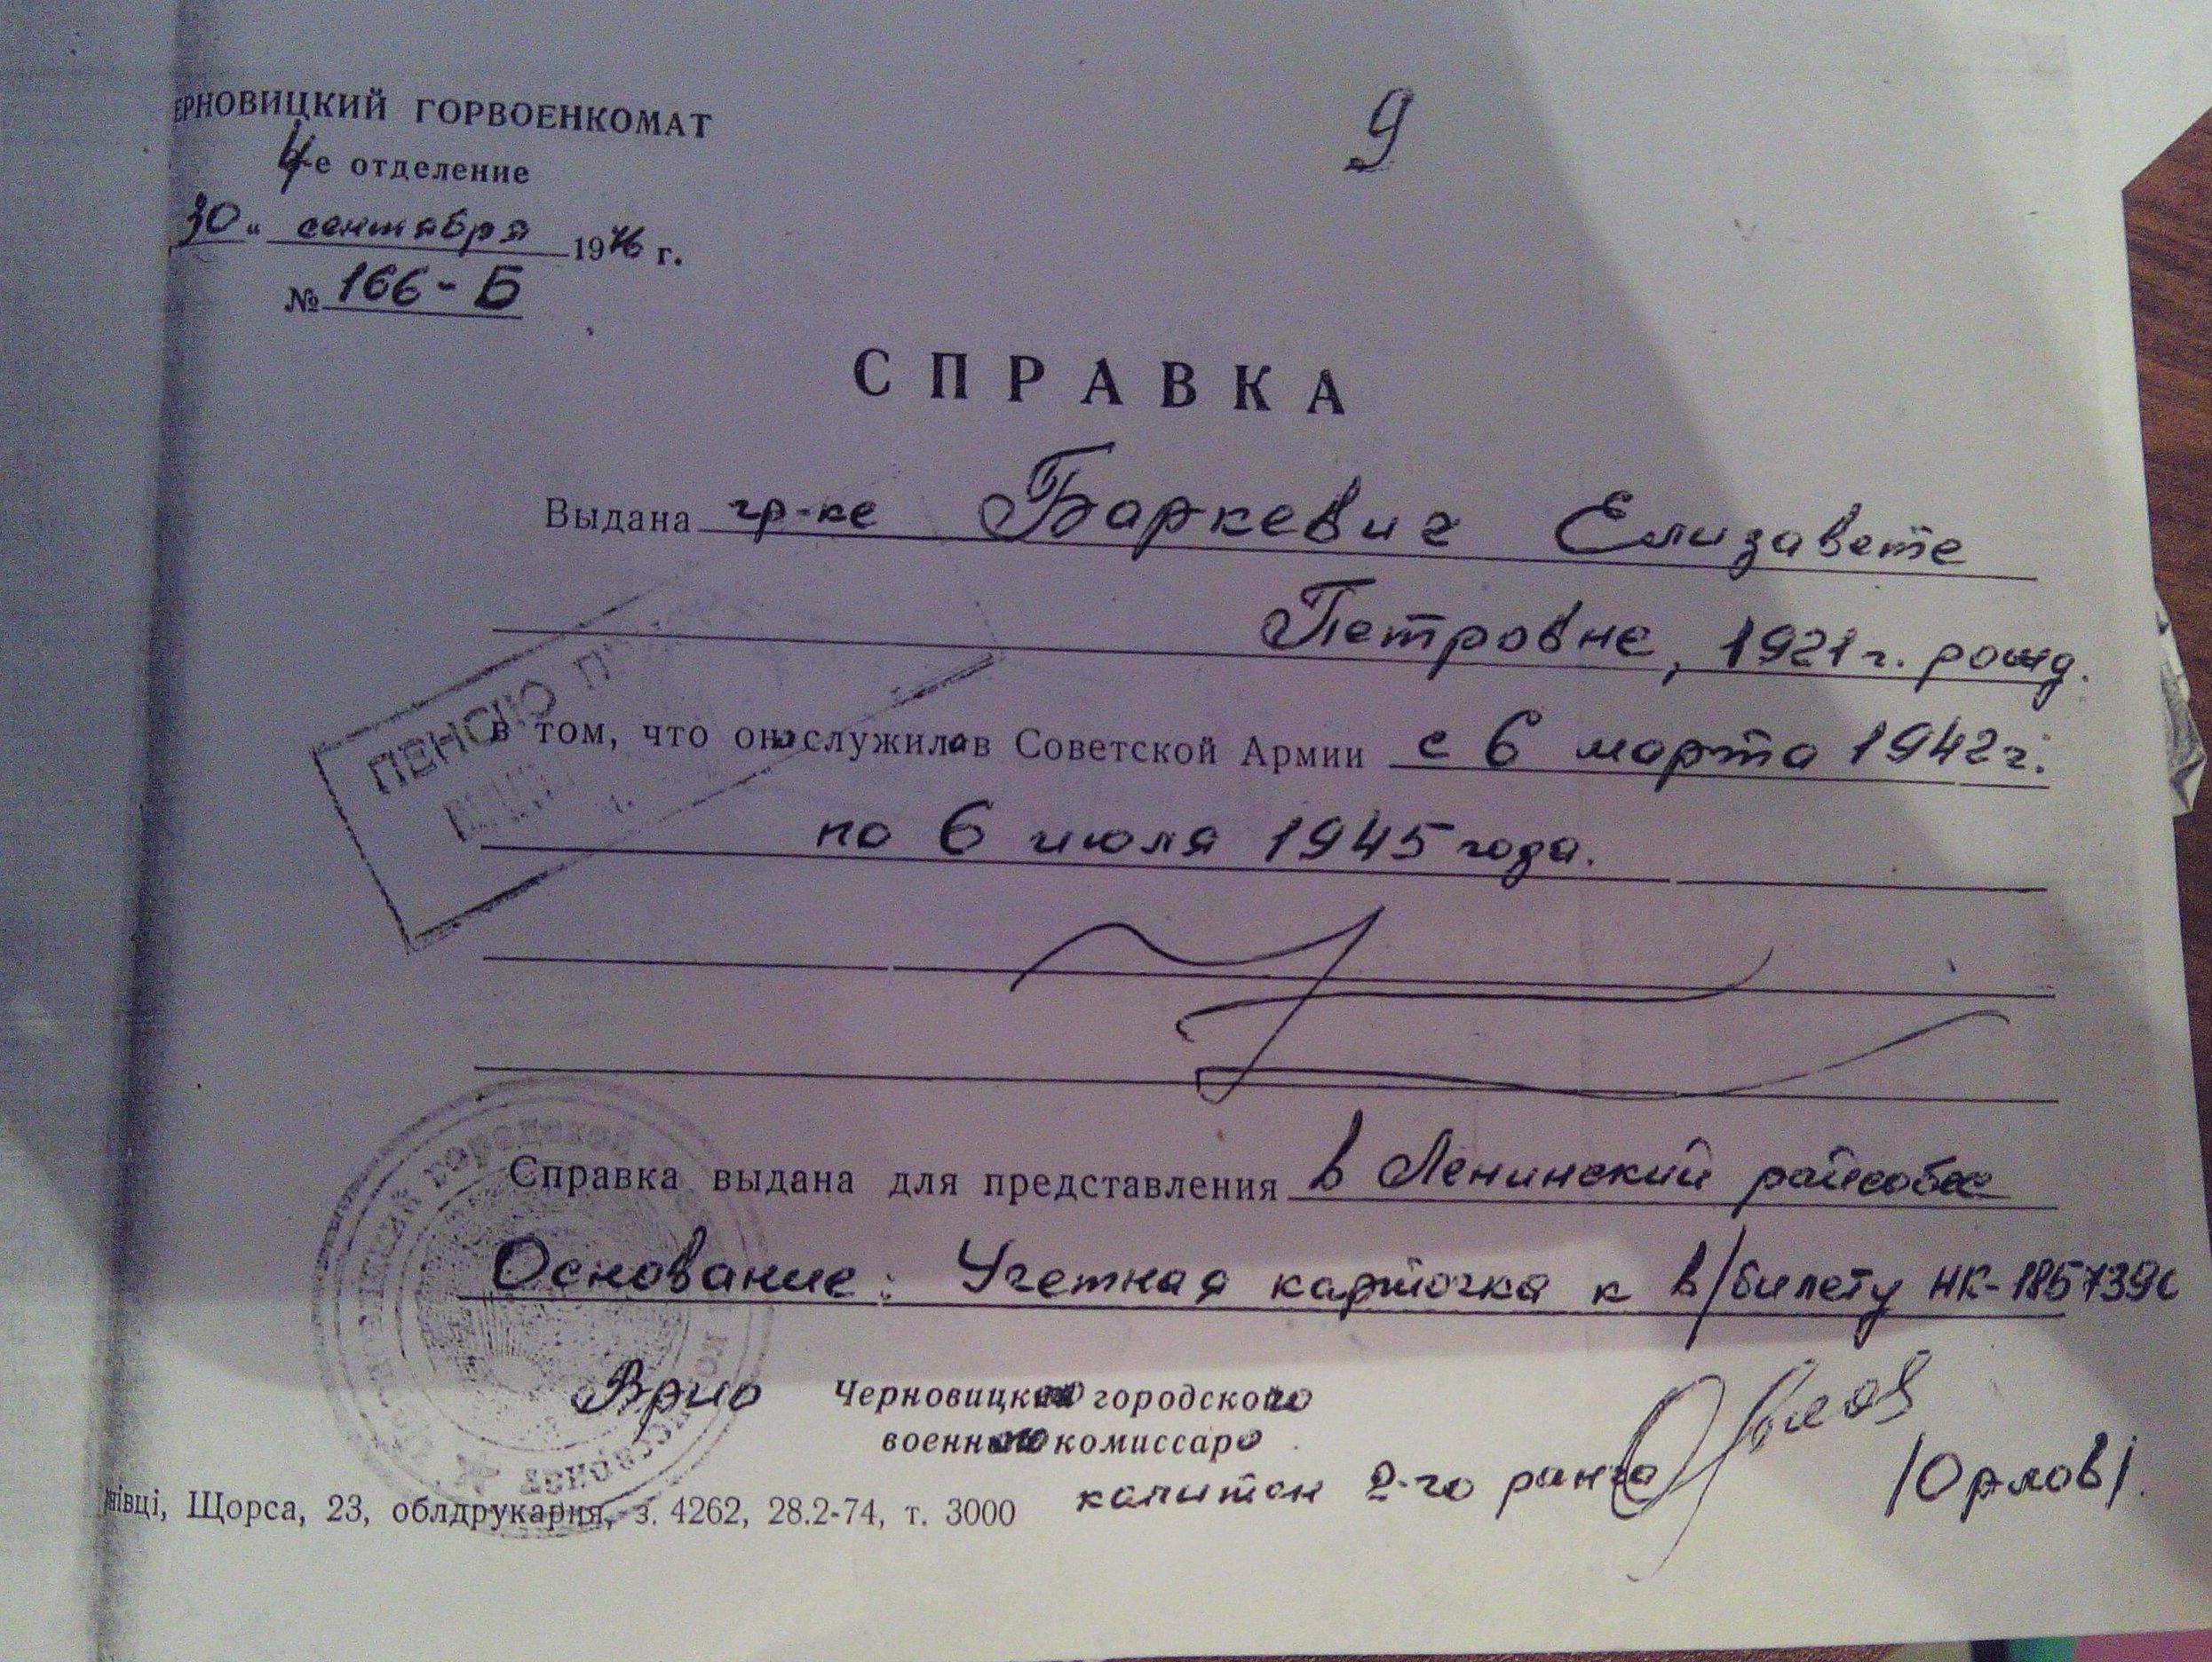 ЕРНОВИЦКИЙ ГОРВОЕНКОМАТ
9
4-е отделение
30 " сентября 1976 г.
№ 166-Б
СПРАВКА
Выдана гр-ке Баркевич Елизавете
Петровне, 1921 г. рожд.
ПЕНСІЮ
в том, что она служила в Советской Армии с 6 марта 1942 г.
по 6 июля 1945 года.
Справка выдана для представления в Ленинский райсобес
Основание: Учетная карточка к в/билету НК-1857390
Врио Черновицкого городского
военного комиссара
капитан 2-го ранга Орлов /Орлов/.
нівці, Щорса, 23, облдрукарня, з. 4262, 28.2-74, т. 3000